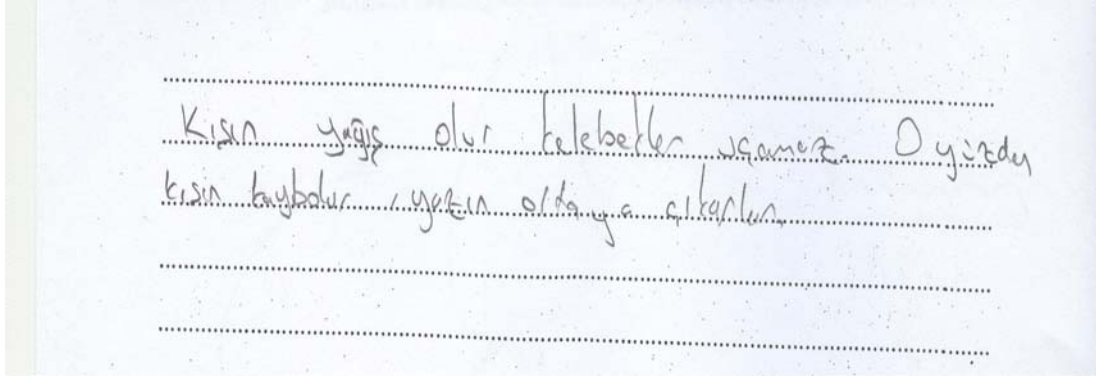 Kışın yağış olur kelebekler uçamaz. O yüzden
kışın kaybolur, yazın ortaya çıkarlar.